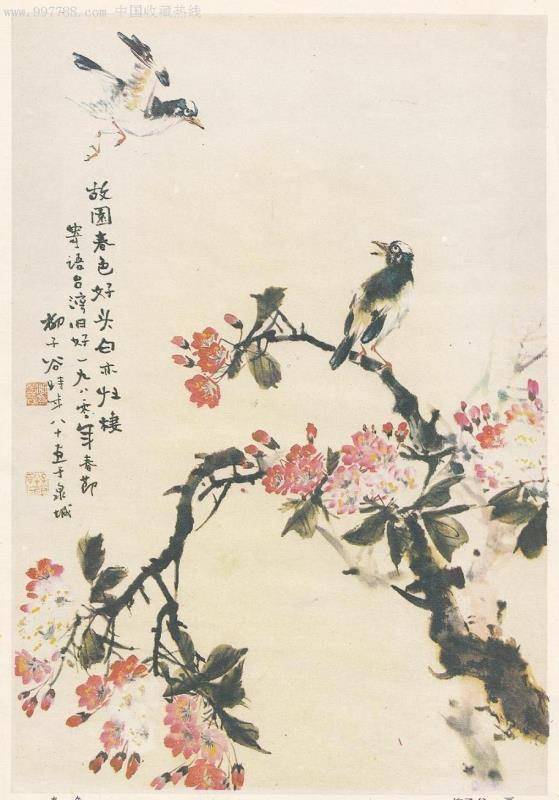 www.997788.com 中国收藏热线
故園春色好头白亦归棲
寄语台湾旧好一九八零年春節
柳子谷時年八十画于泉城